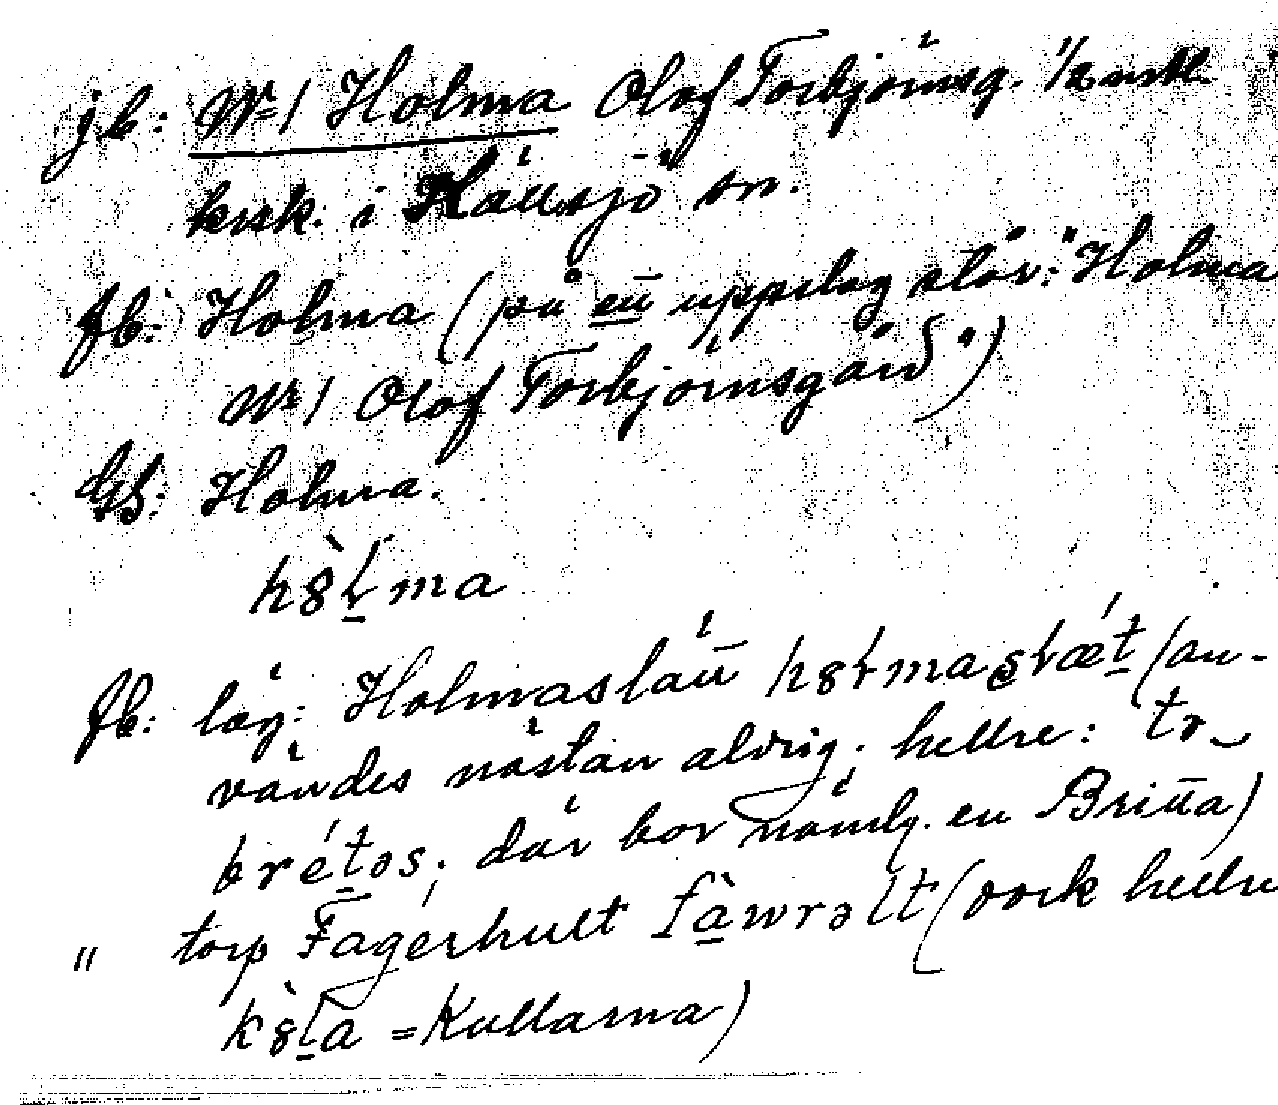 jb: Nr 1 Holma Olof Torbjörnsg. 1/2 mtl
krsk. i Källsjö sn.
fb: Holma (på ett uppslag står: "Holma
Nr 1 Olof Torbjörnsgård")
GS: Holma.
h8̀ɫ̱ma
fb: läg: Holmaslätt h8ɫmaslǽṯ (an-
vändes nästan aldrig; hellre: tr‿
bréṯos; där bor nämlg. en Britta)
" torp Fagerhult fà̱wrəlt (dock hellre
k8̀ḻa = Kullarna)